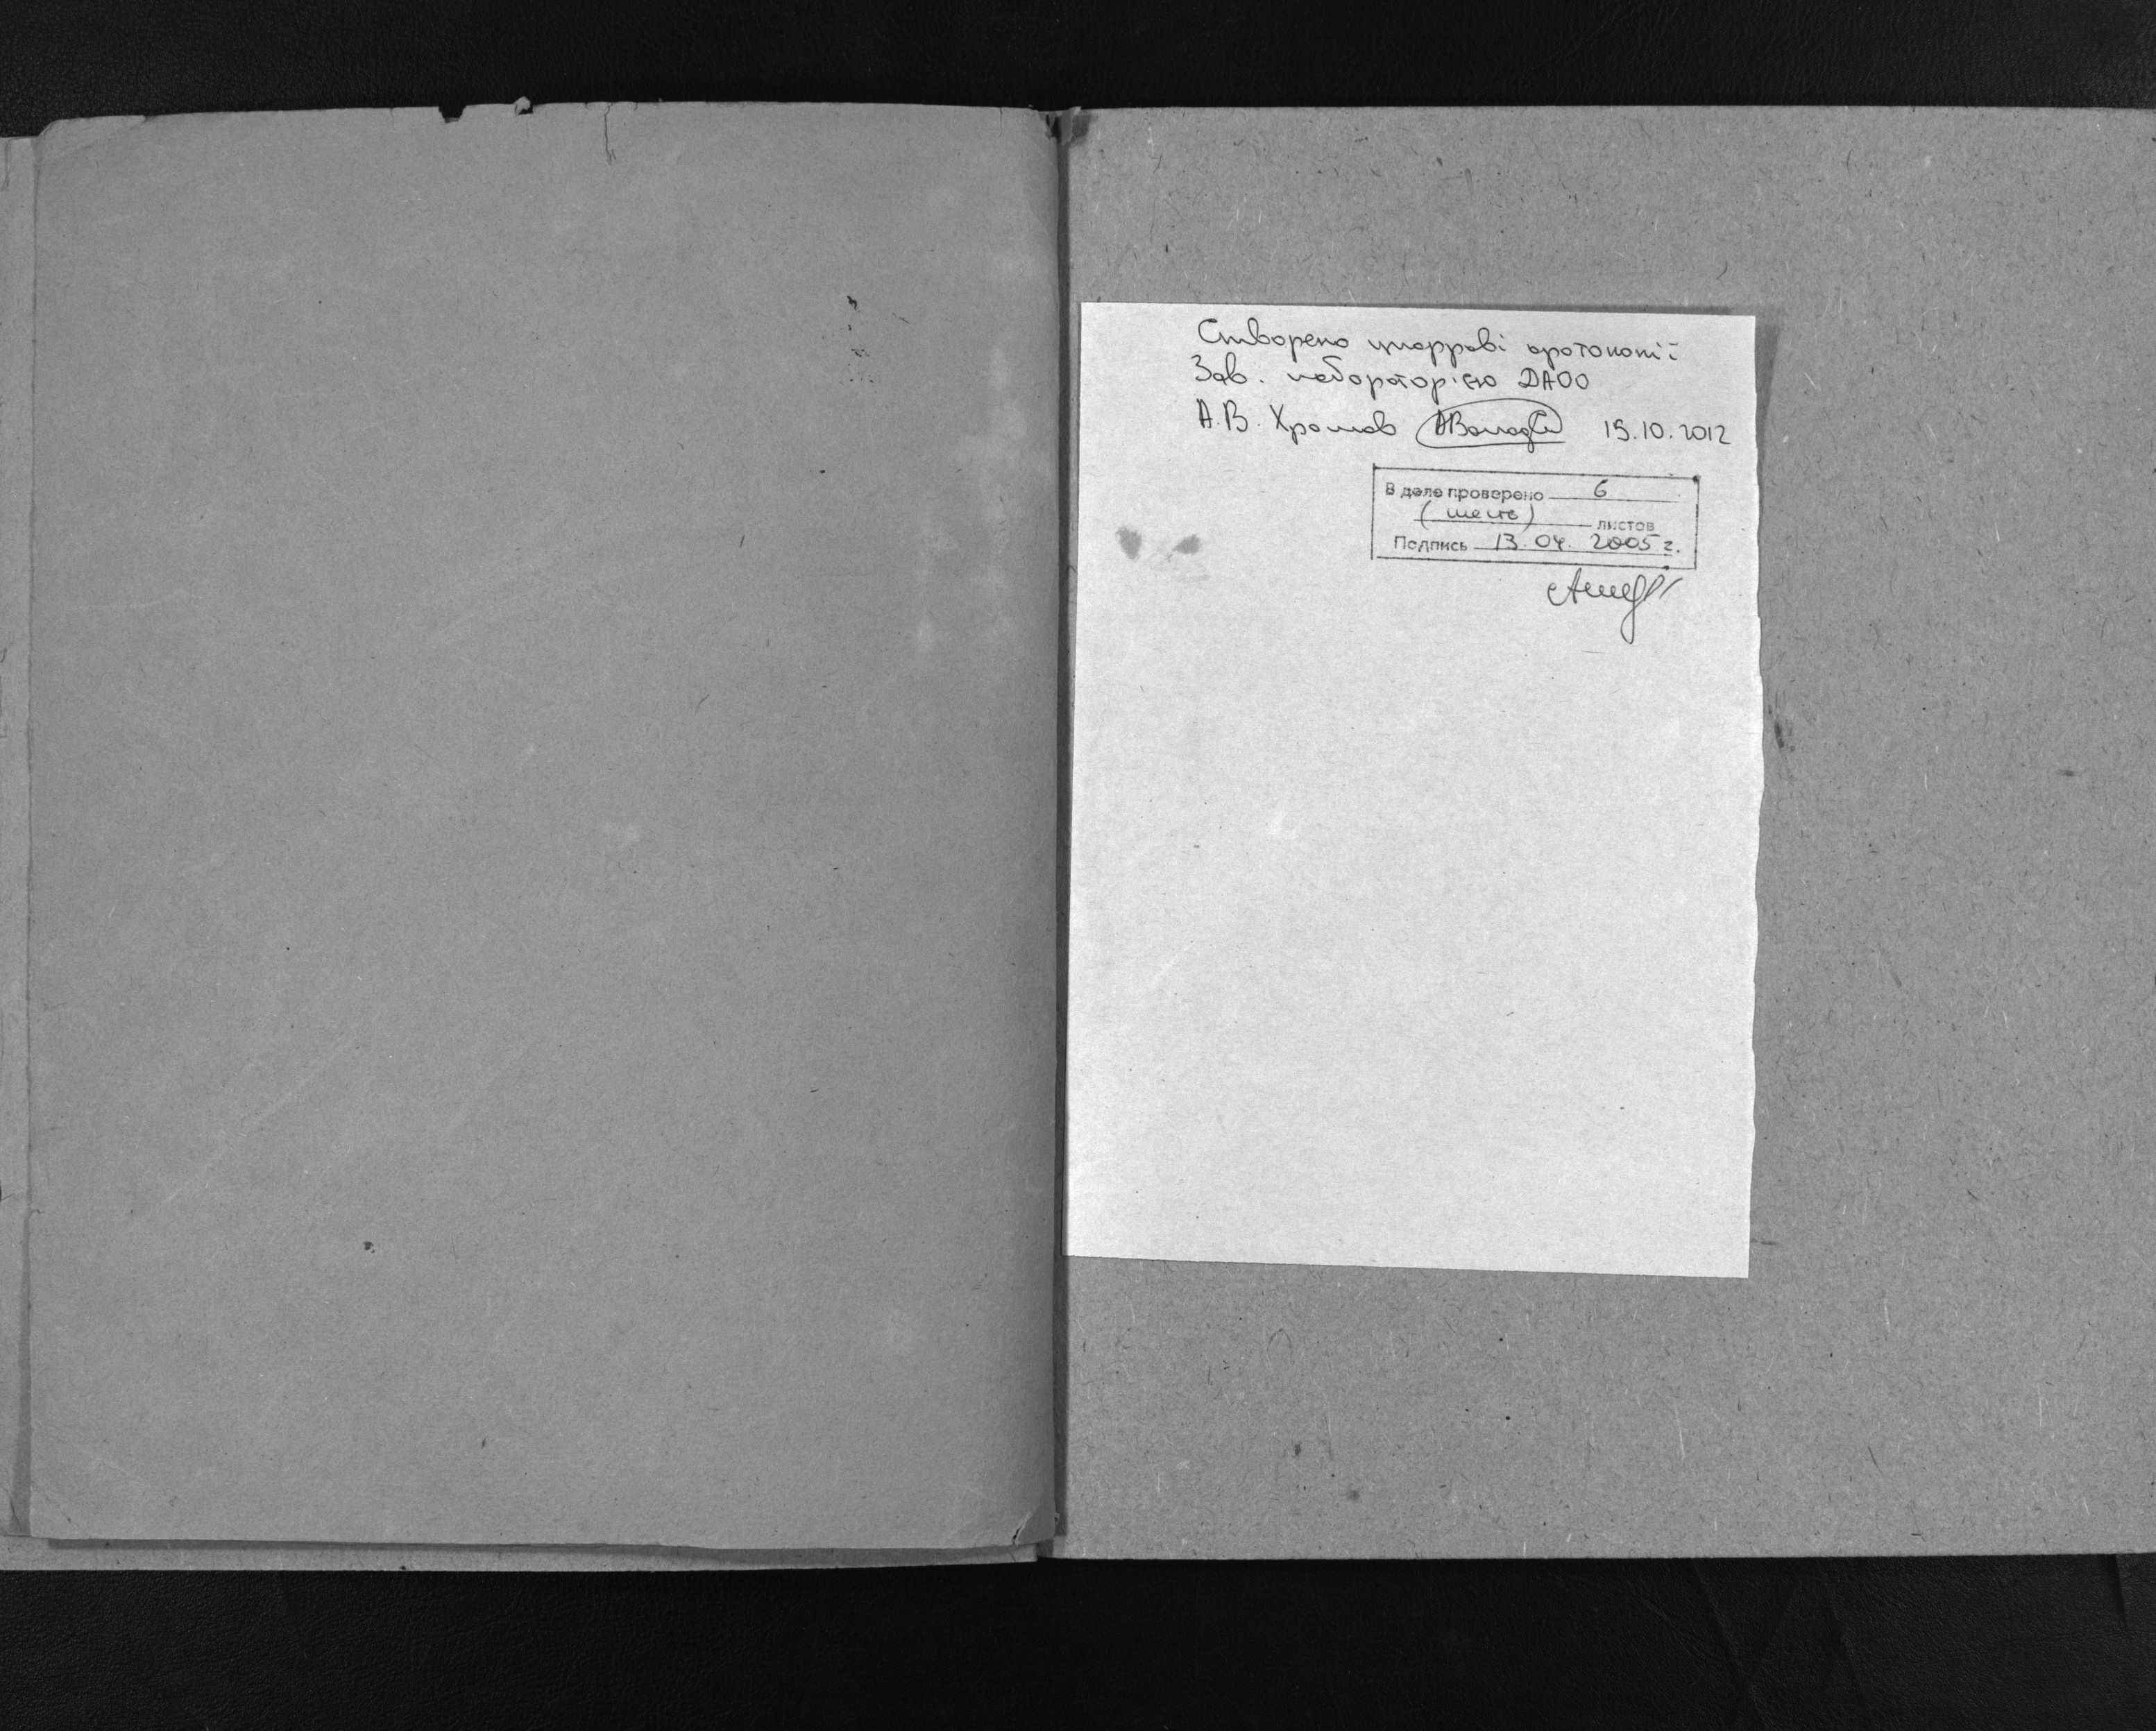 Створено цифрові фотокопії
Зав. лабораторією ДАОО
А.В. Хромов 15.10.2012
В деле проверено 6
(шесть) листов
Подпись 13.04.2005 г.